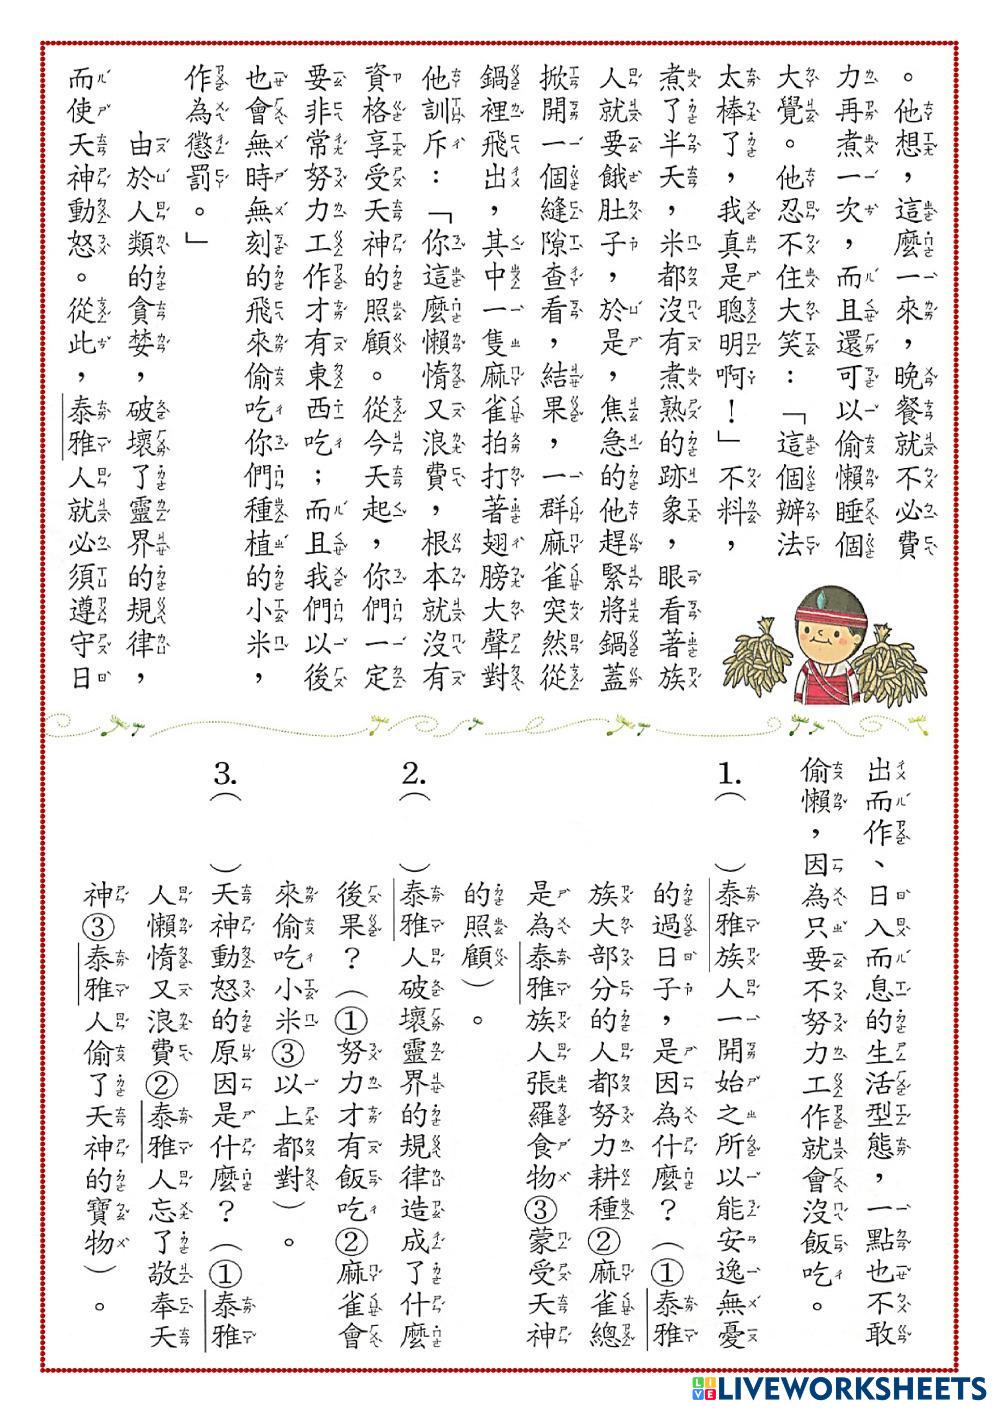 。他想，這麼一來，晚餐就不必費
力再煮一次，而且還可以偷懶睡個
大覺。他忍不住大笑：「這個辦法
太棒了，我真是聰明啊！」不料，
煮了半天，米都沒有煮熟的跡象，眼看著族
人就要餓肚子，於是，焦急的他趕緊將鍋蓋
掀開一個縫隙查看，結果，一群麻雀突然從
鍋裡飛出，其中一隻麻雀拍打著翅膀大聲對
他訓斥：「你這麼懶惰又浪費，根本就沒有
資格享受天神的照顧。從今天起，你們一定
要非常努力工作才有東西吃；而且我們以後
也會無時無刻的飛來偷吃你們種植的小米，
作為懲罰。」
由於人類的貪婪，破壞了靈界的規律，
而使天神動怒。從此，泰雅人就必須遵守日
出而作、日入而息的生活型態，一點也不敢
偷懶，因為只要不努力工作就會沒飯吃。
1.（　）泰雅族人一開始之所以能安逸無憂
的過日子，是因為什麼？（①泰雅
族大部分的人都努力耕種②麻雀總
是為泰雅族人張羅食物③蒙受天神
的照顧）。
2.（　）泰雅人破壞靈界的規律造成了什麼
後果？（①努力才有飯吃②麻雀會
來偷吃小米③以上都對）。
3.（　）天神動怒的原因是什麼？（①泰雅
人懶惰又浪費②泰雅人忘了敬奉天
神③泰雅人偷了天神的寶物）。
LIVEWORKSHEETS